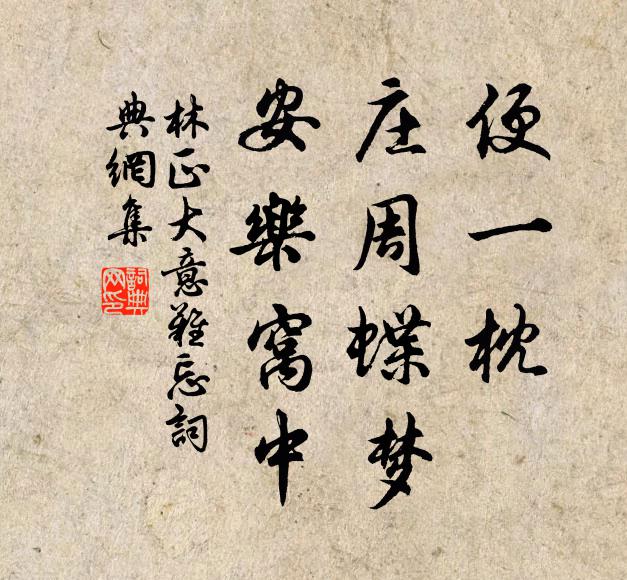 便一枕
庄周蝶梦
安樂窩中
林正大意難忘詞
典網集
詞典网印